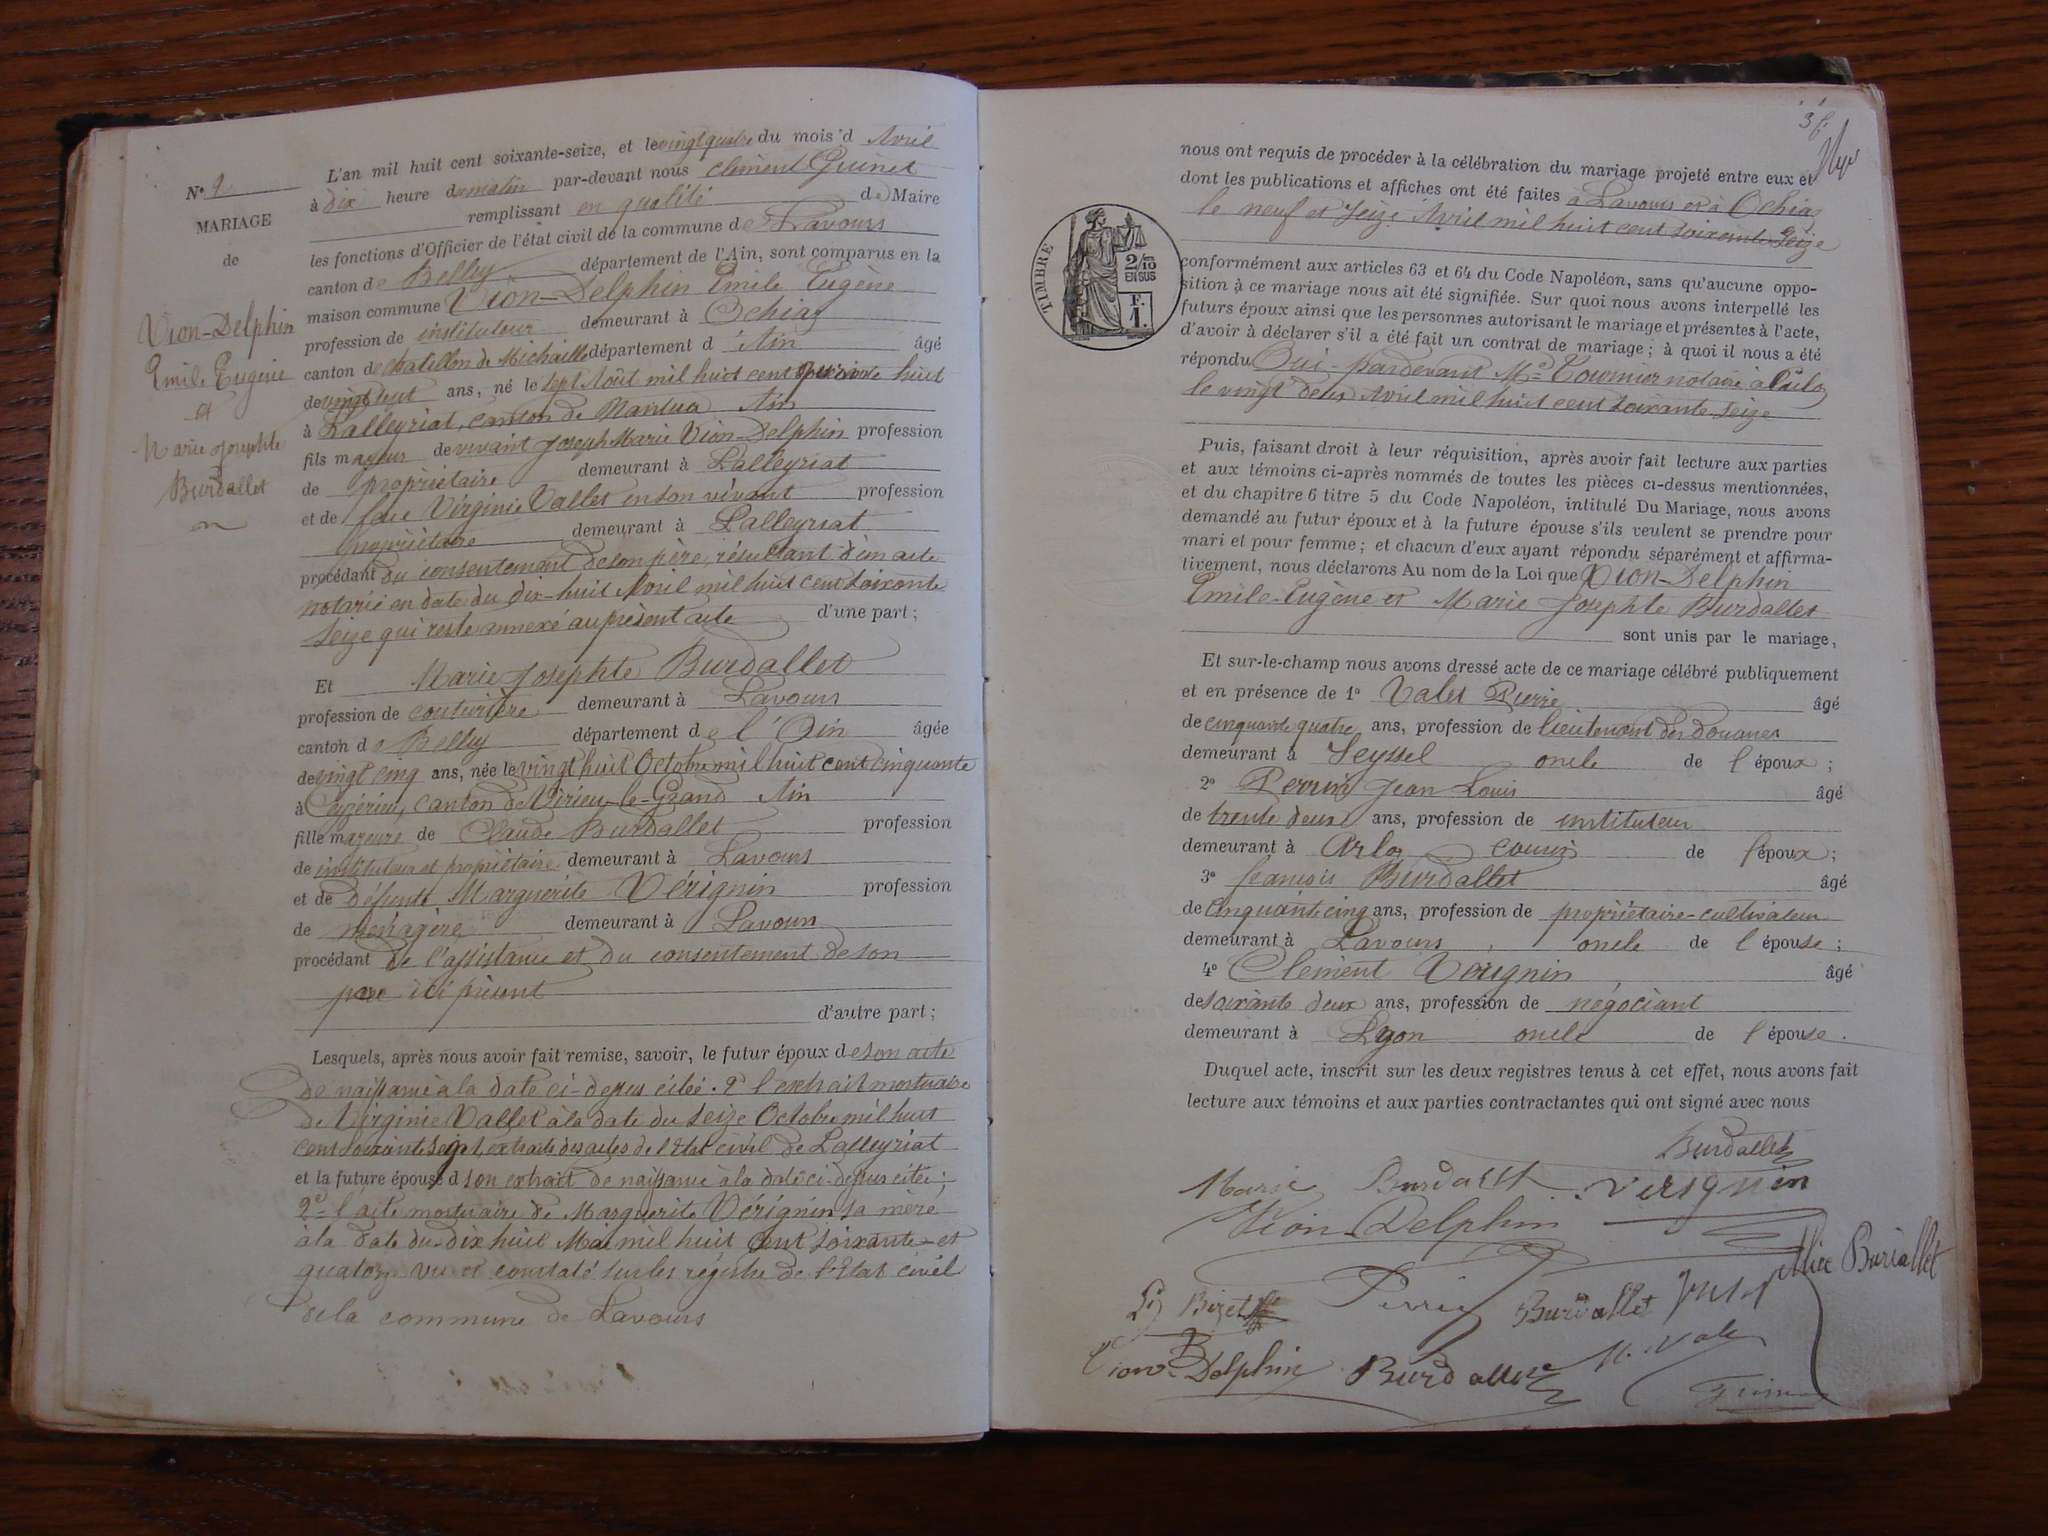 L'an mil huit cent soixante-seize, et le vingt quatre du mois d'Avril
à dix heure du matin par-devant nous Clément Guinet
remplissant en qualité de Maire
les fonctions d'Officier de l'état civil de la commune de Lavours
canton de Belley département de l'Ain, sont comparus en la
maison commune Vion-Delphin Emile Eugène
profession de instituteur demeurant à Ochiaz
canton de Chatillon de Michaille département d Ain âgé
de vingt sept ans, né le sept Août mil huit cent quarante huit
à Lalleyriat, canton de Nantua Ain
fils majeur de vivant Joseph Marie Vion-Delphin profession
de propriétaire demeurant à Lalleyriat
et de feue Virginie Vallet en son vivant profession
propriétaire demeurant à Lalleyriat
procédant du consentement de son père, résultant d'un acte
notarié en date du dix-huit Avril mil huit cent soixante
seize qui reste annexé au présent acte d'une part ;
Et Marie Josephte Burdallet
profession de couturière demeurant à Lavours
canton de Belley département de l'Ain âgée
de vingt cinq ans, née le vingt huit Octobre mil huit cent cinquante
à canton de Virieu-le-Grand Ain
fille majeure de Claude Burdallet profession
de instituteur et propriétaire demeurant à Lavours
et de défunte Marguerite Vérignin profession
de ménagère demeurant à Lavours
procédant de l'assistance et du consentement de son
père ici présent
d'autre part ;
Lesquels, après nous avoir fait remise, savoir, le futur époux de son acte
de naissance à la date ci-dessus citée. 2° l'extrait mortuaire
de Virginie Vallet à la date du seize Octobre mil huit
cent soixante sept extraits des actes de l'Etat civil de Lalleyriat
et la future épouse d son extrait de naissance à la date ci-dessus citée ;
2° l'acte mortuaire de Marguerite Vérignin sa mère
à la date du dix huit Mai mil huit cent soixante et
quatorze vu et constaté sur les régistre de l'Etat civil
de la commune de Lavours
N° 2
MARIAGE
de
Vion-Delphin
Emile Eugène
et
Marie Josephte
Burdallet
3 f.
nous ont requis de procéder à la célébration du mariage projeté entre eux et
dont les publications et affiches ont été faites à Lavours et à Ochiaz
le neuf et seize Avril mil huit cent soixante seize
TIMBRE
2/10
EN SUS
F.
1.
conformément aux articles 63 et 64 du Code Napoléon, sans qu'aucune oppo-
sition à ce mariage nous ait été signifiée. Sur quoi nous avons interpellé les
futurs époux ainsi que les personnes autorisant le mariage et présentes à l'acte,
d'avoir à déclarer s'il a été fait un contrat de mariage ; à quoi il nous a été
répondu Oui - pardevant Me Tournier notaire à Culoz
le vingt deux Avril mil huit cent soixante seize
Puis, faisant droit à leur réquisition, après avoir fait lecture aux parties
et aux témoins ci-après nommés de toutes les pièces ci-dessus mentionnées,
et du chapitre 6 titre 5 du Code Napoléon, intitulé Du Mariage, nous avons
demandé au futur époux et à la future épouse s'ils veulent se prendre pour
mari et pour femme ; et chacun d'eux ayant répondu séparément et affirma-
tivement, nous déclarons Au nom de la Loi que Vion-Delphin
Emile-Eugène et Marie Josephte Burdallet
sont unis par le mariage,
Et sur-le-champ nous avons dressé acte de ce mariage célébré publiquement
et en présence de 1° Valet Pierre âgé
de cinquante quatre ans, profession de lieutenant des Douanes
demeurant à Seyssel oncle de l'époux ;
2° Perrin Jean Louis âgé
de trente deux ans, profession de instituteur
demeurant à Arloz cousin de l'époux ;
3° francois Burdallet âgé
de cinquante cinq ans, profession de propriétaire-cultivateur
demeurant à Lavours, oncle de l'épouse ;
4° Clement Verignin âgé
de soixante deux ans, profession de négociant
demeurant à Lyon oncle de l'épouse.
Duquel acte, inscrit sur les deux registres tenus à cet effet, nous avons fait
lecture aux témoins et aux parties contractantes qui ont signé avec nous
Burdallet
Marie Burdallet Verignin
Vion Delphin
Alice Burdallet
Bizet Perrin Burdallet
Vion-Delphin Burdallet